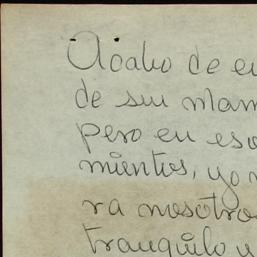 Acabo de en
de sus mam
pero en eso
mientos, yo
ra nosotros
tranquilo y